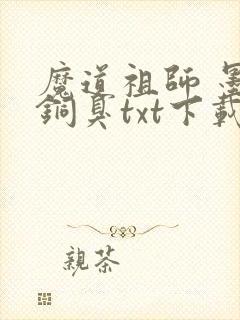 魔道祖師 墨
銅臭txt下載
親茶